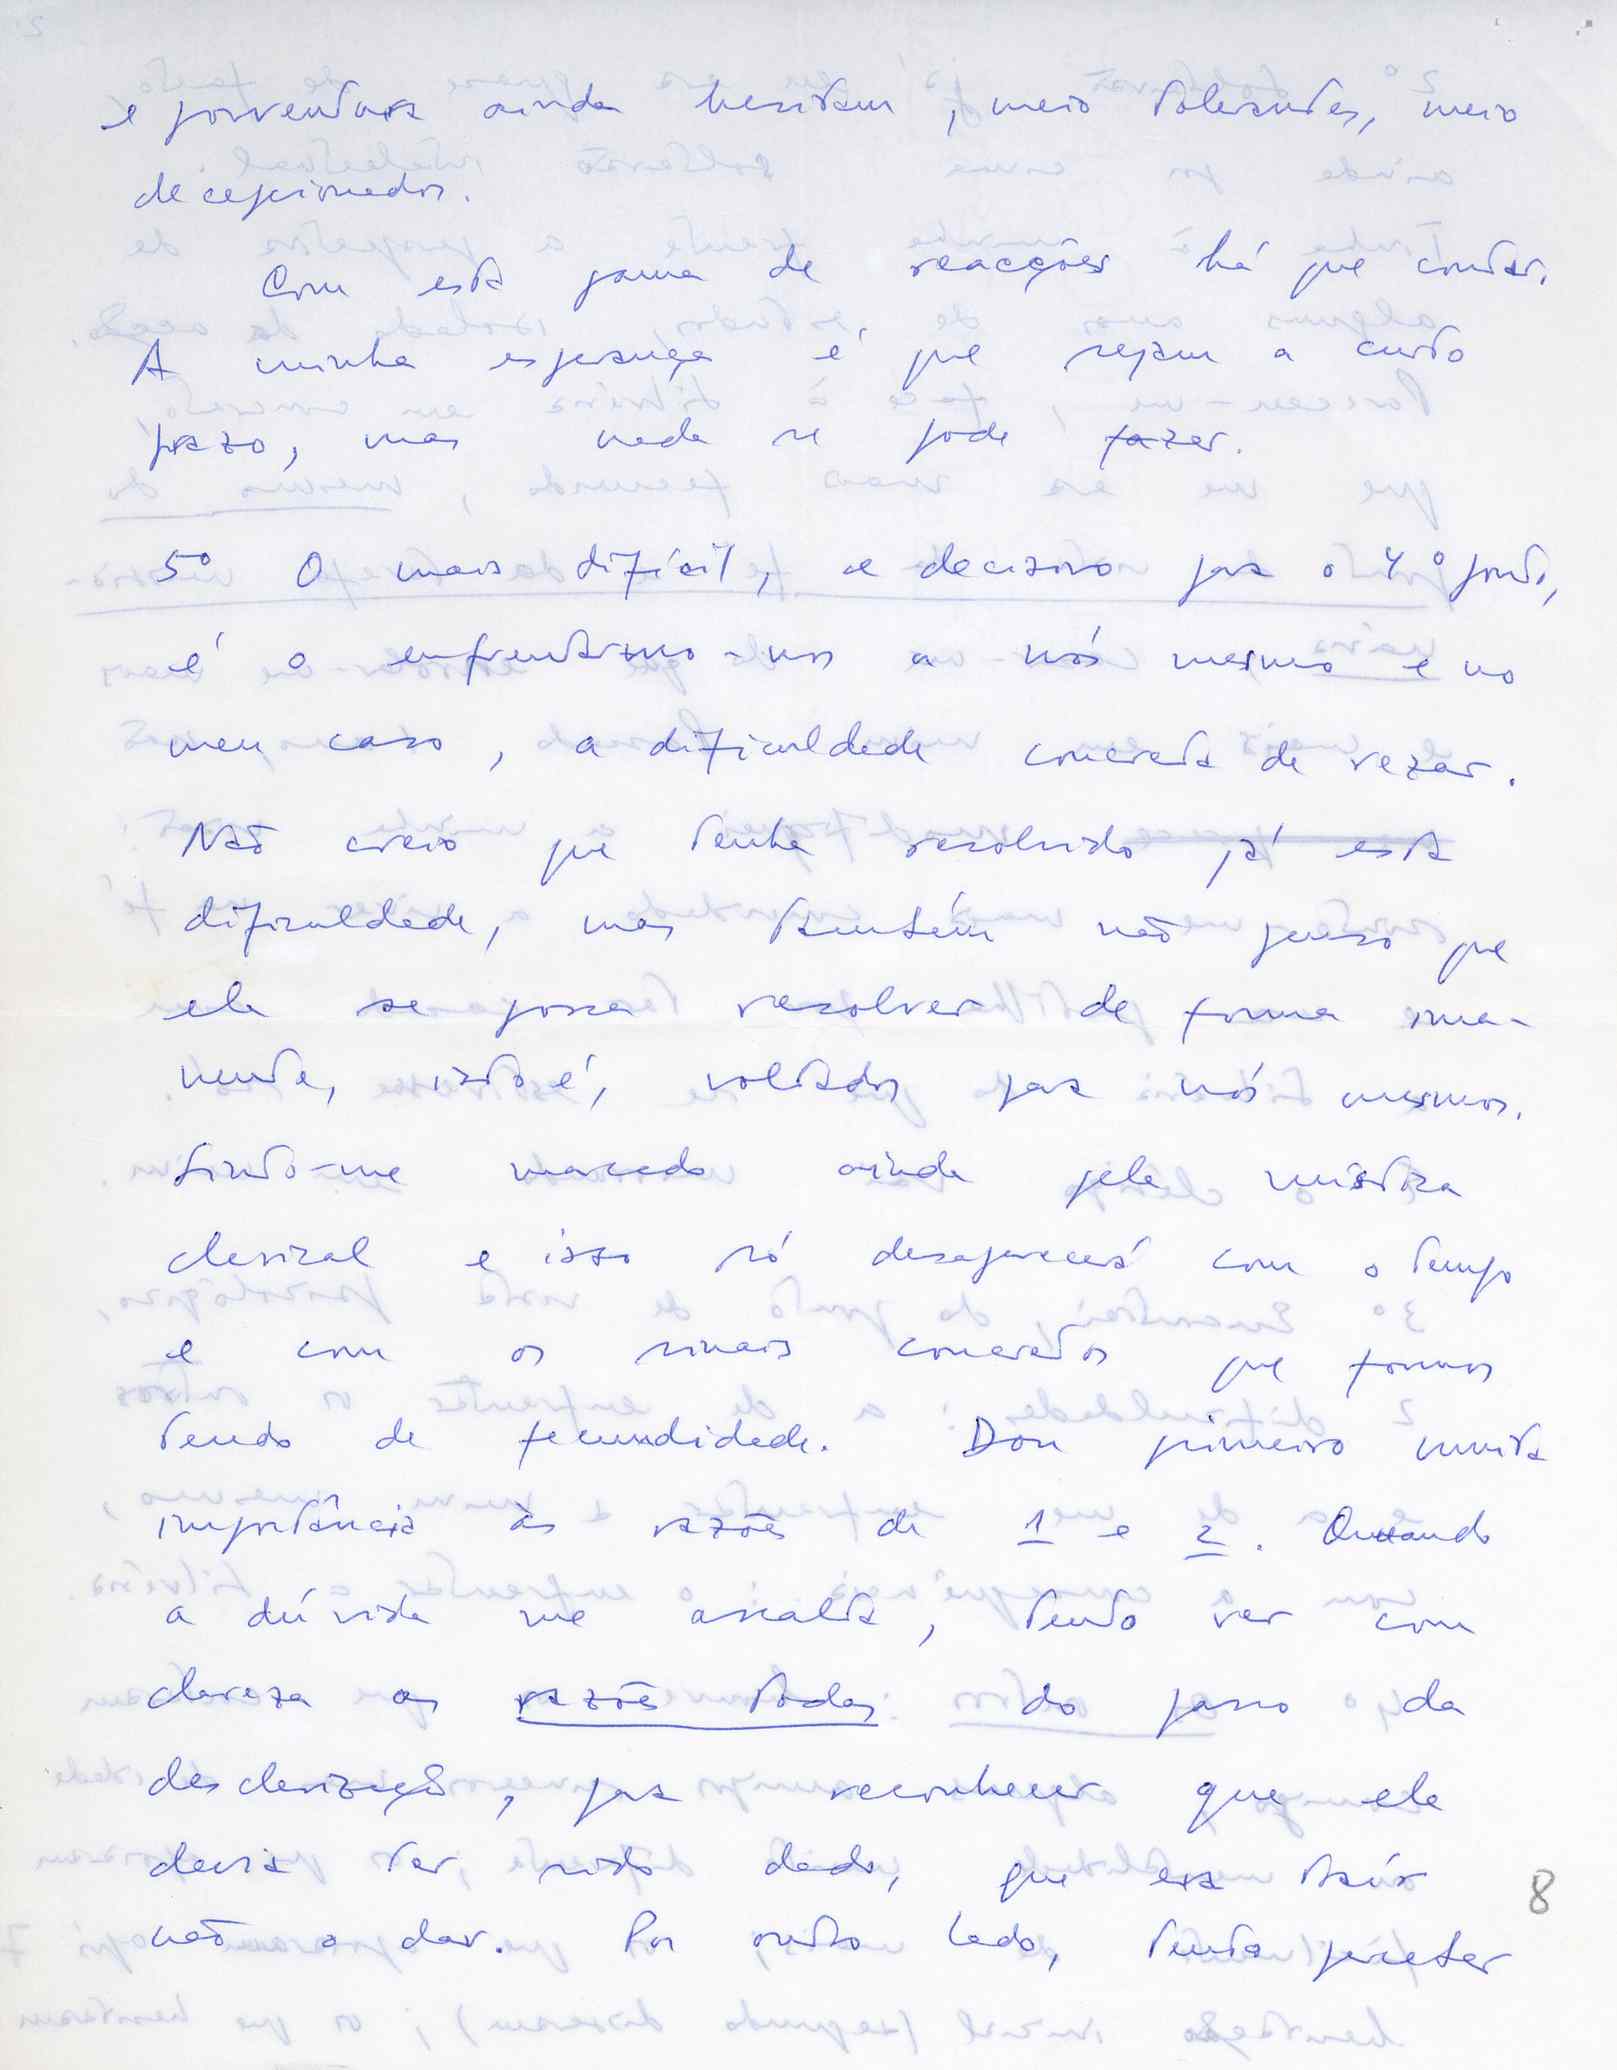 e porventura ainda hesitam, meio tolerantes, meio
decepcionados.
Com esta gama de reacções há que contar.
A minha esperança é que sejam a curto
prazo, mas nada se pode fazer.
5º O mais difícil, e decisivo para o 4º ponto,
é o enfrentarmo-nos a nós mesmo e no
meu caso, a dificuldade concreta de rezar.
Não creio que tenha resolvido já esta
dificuldade, mas também não penso que
ela se possa resolver de forma ima-
nente, isto é, voltados para nós mesmos.
Sinto-me marcado ainda pela mística
clerical e isso só desaparecerá com o tempo
e com os sinais concretos que formos
tendo de fecundidade. Dou primeiro muita
importância às razões de 1 e 2. Quando
a dúvida me assalta, tento ver com
clareza as razões todas do passo da
desclerização, para reconhecer que ele
devia ter sido dado, que era trair
não o dar. Por outro lado, tento
8